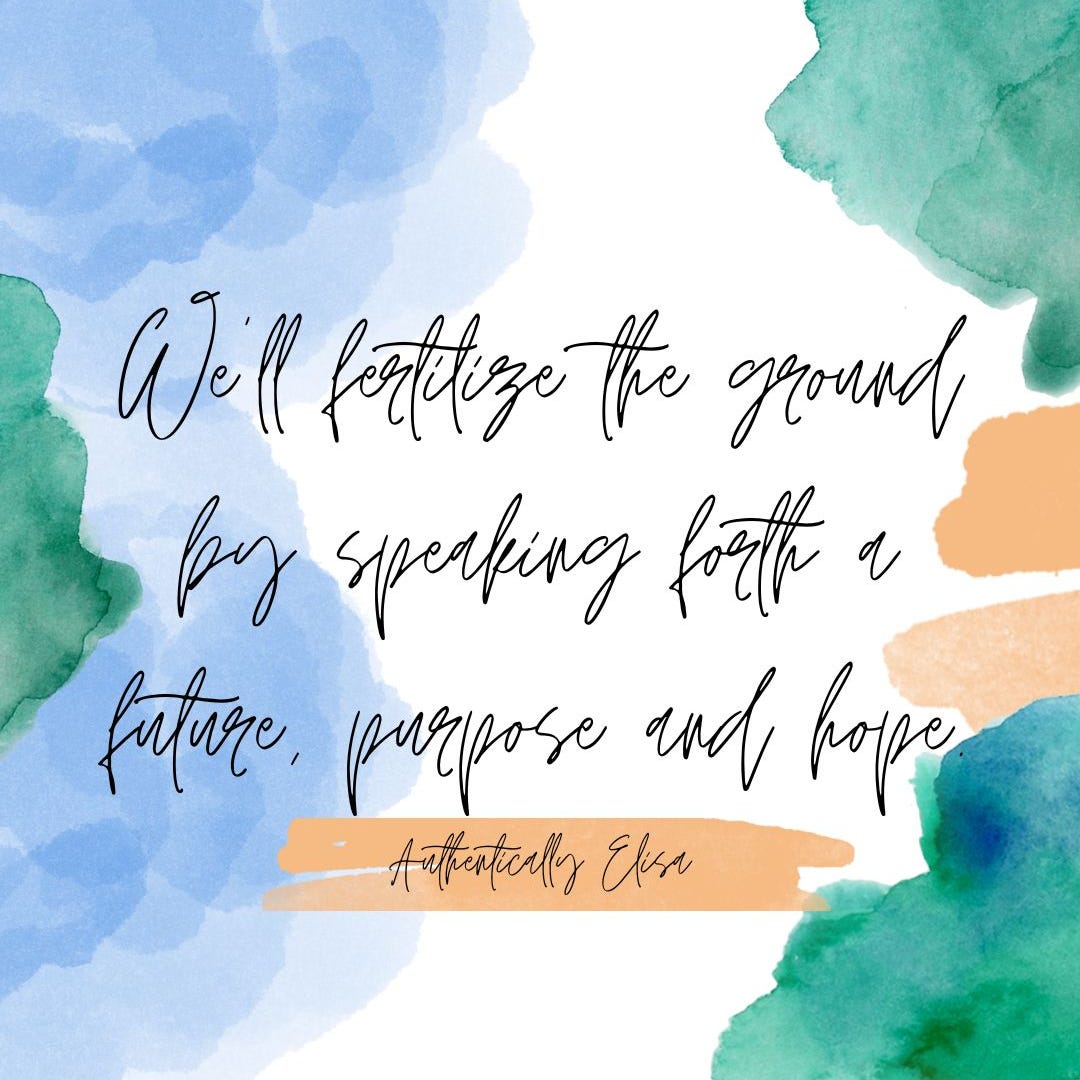 We'll fertilize the ground
by speaking forth a
future, purpose and hope.
Authentically Elisa